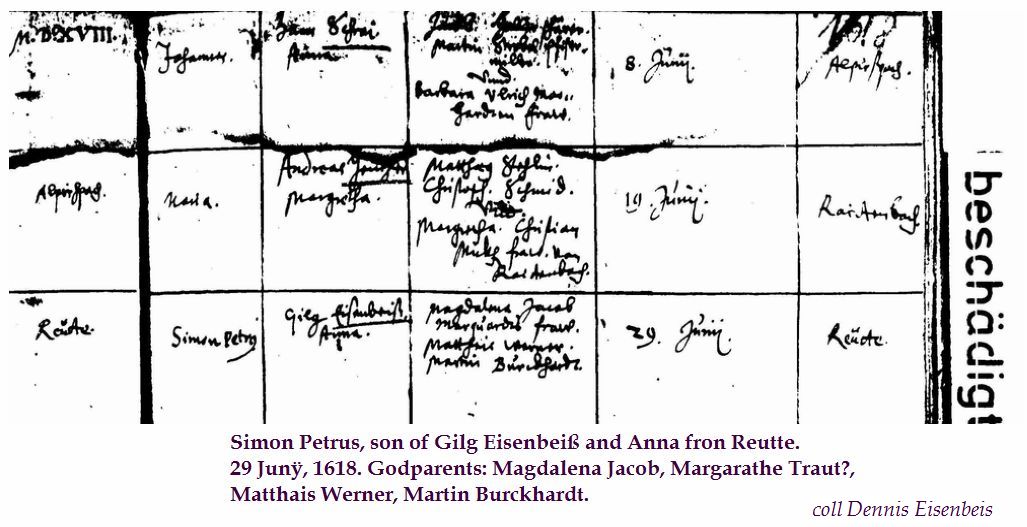 M. DCXVIII.
Johannes.
Schrai
Anna.
Martin
Vnd.
Barbara Vlrich
fraw.
8. Junÿ.
Alpirspach.
Alpirspach.
Maria.
Andreas
Margretha.
Christoph. Schmid.
Margretha. Christian
fraw. von
Raitenbach.
19. Junÿ.
Raitenbach.
Reütte.
Simon Petrus
Gilg Eisenbeiß.
Anna.
Magdalena Jacob
Marquardts fraw.
Mattheis Werner.
Martin Burckhardt.
29. Junÿ.
Reütte.
beschädigt
Simon Petrus, son of Gilg Eisenbeiß and Anna fron Reutte.
29 Junÿ, 1618. Godparents: Magdalena Jacob, Margarathe Traut?,
Matthais Werner, Martin Burckhardt.
coll Dennis Eisenbeis